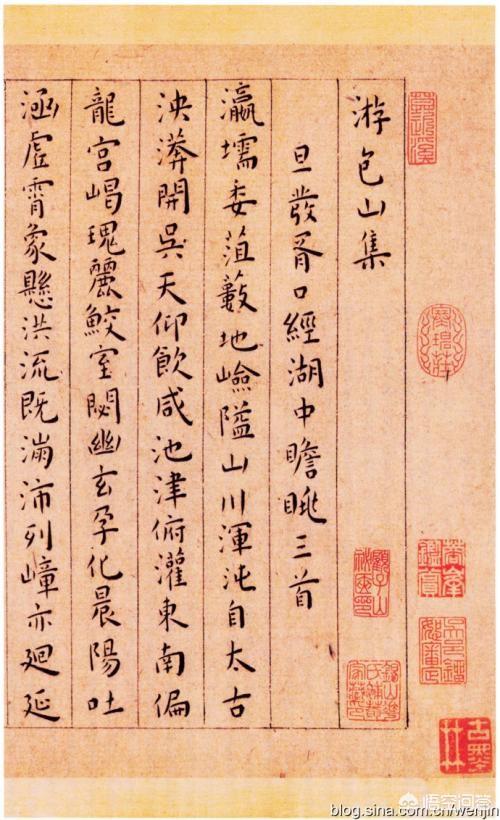 游包山集
旦發胥口經湖中瞻眺三首
瀛壖委菹藪地嶮隘山川渾沌自太古
泱漭開吳天仰飲咸池津俯灌東南偏
龍宮嵑瑰麗鮫室閟幽玄孕化晨陽吐
涵虛霄象懸洪流既滿沛列嶂亦迴延
悟空问答
blog.sina.com.cn/wenjin